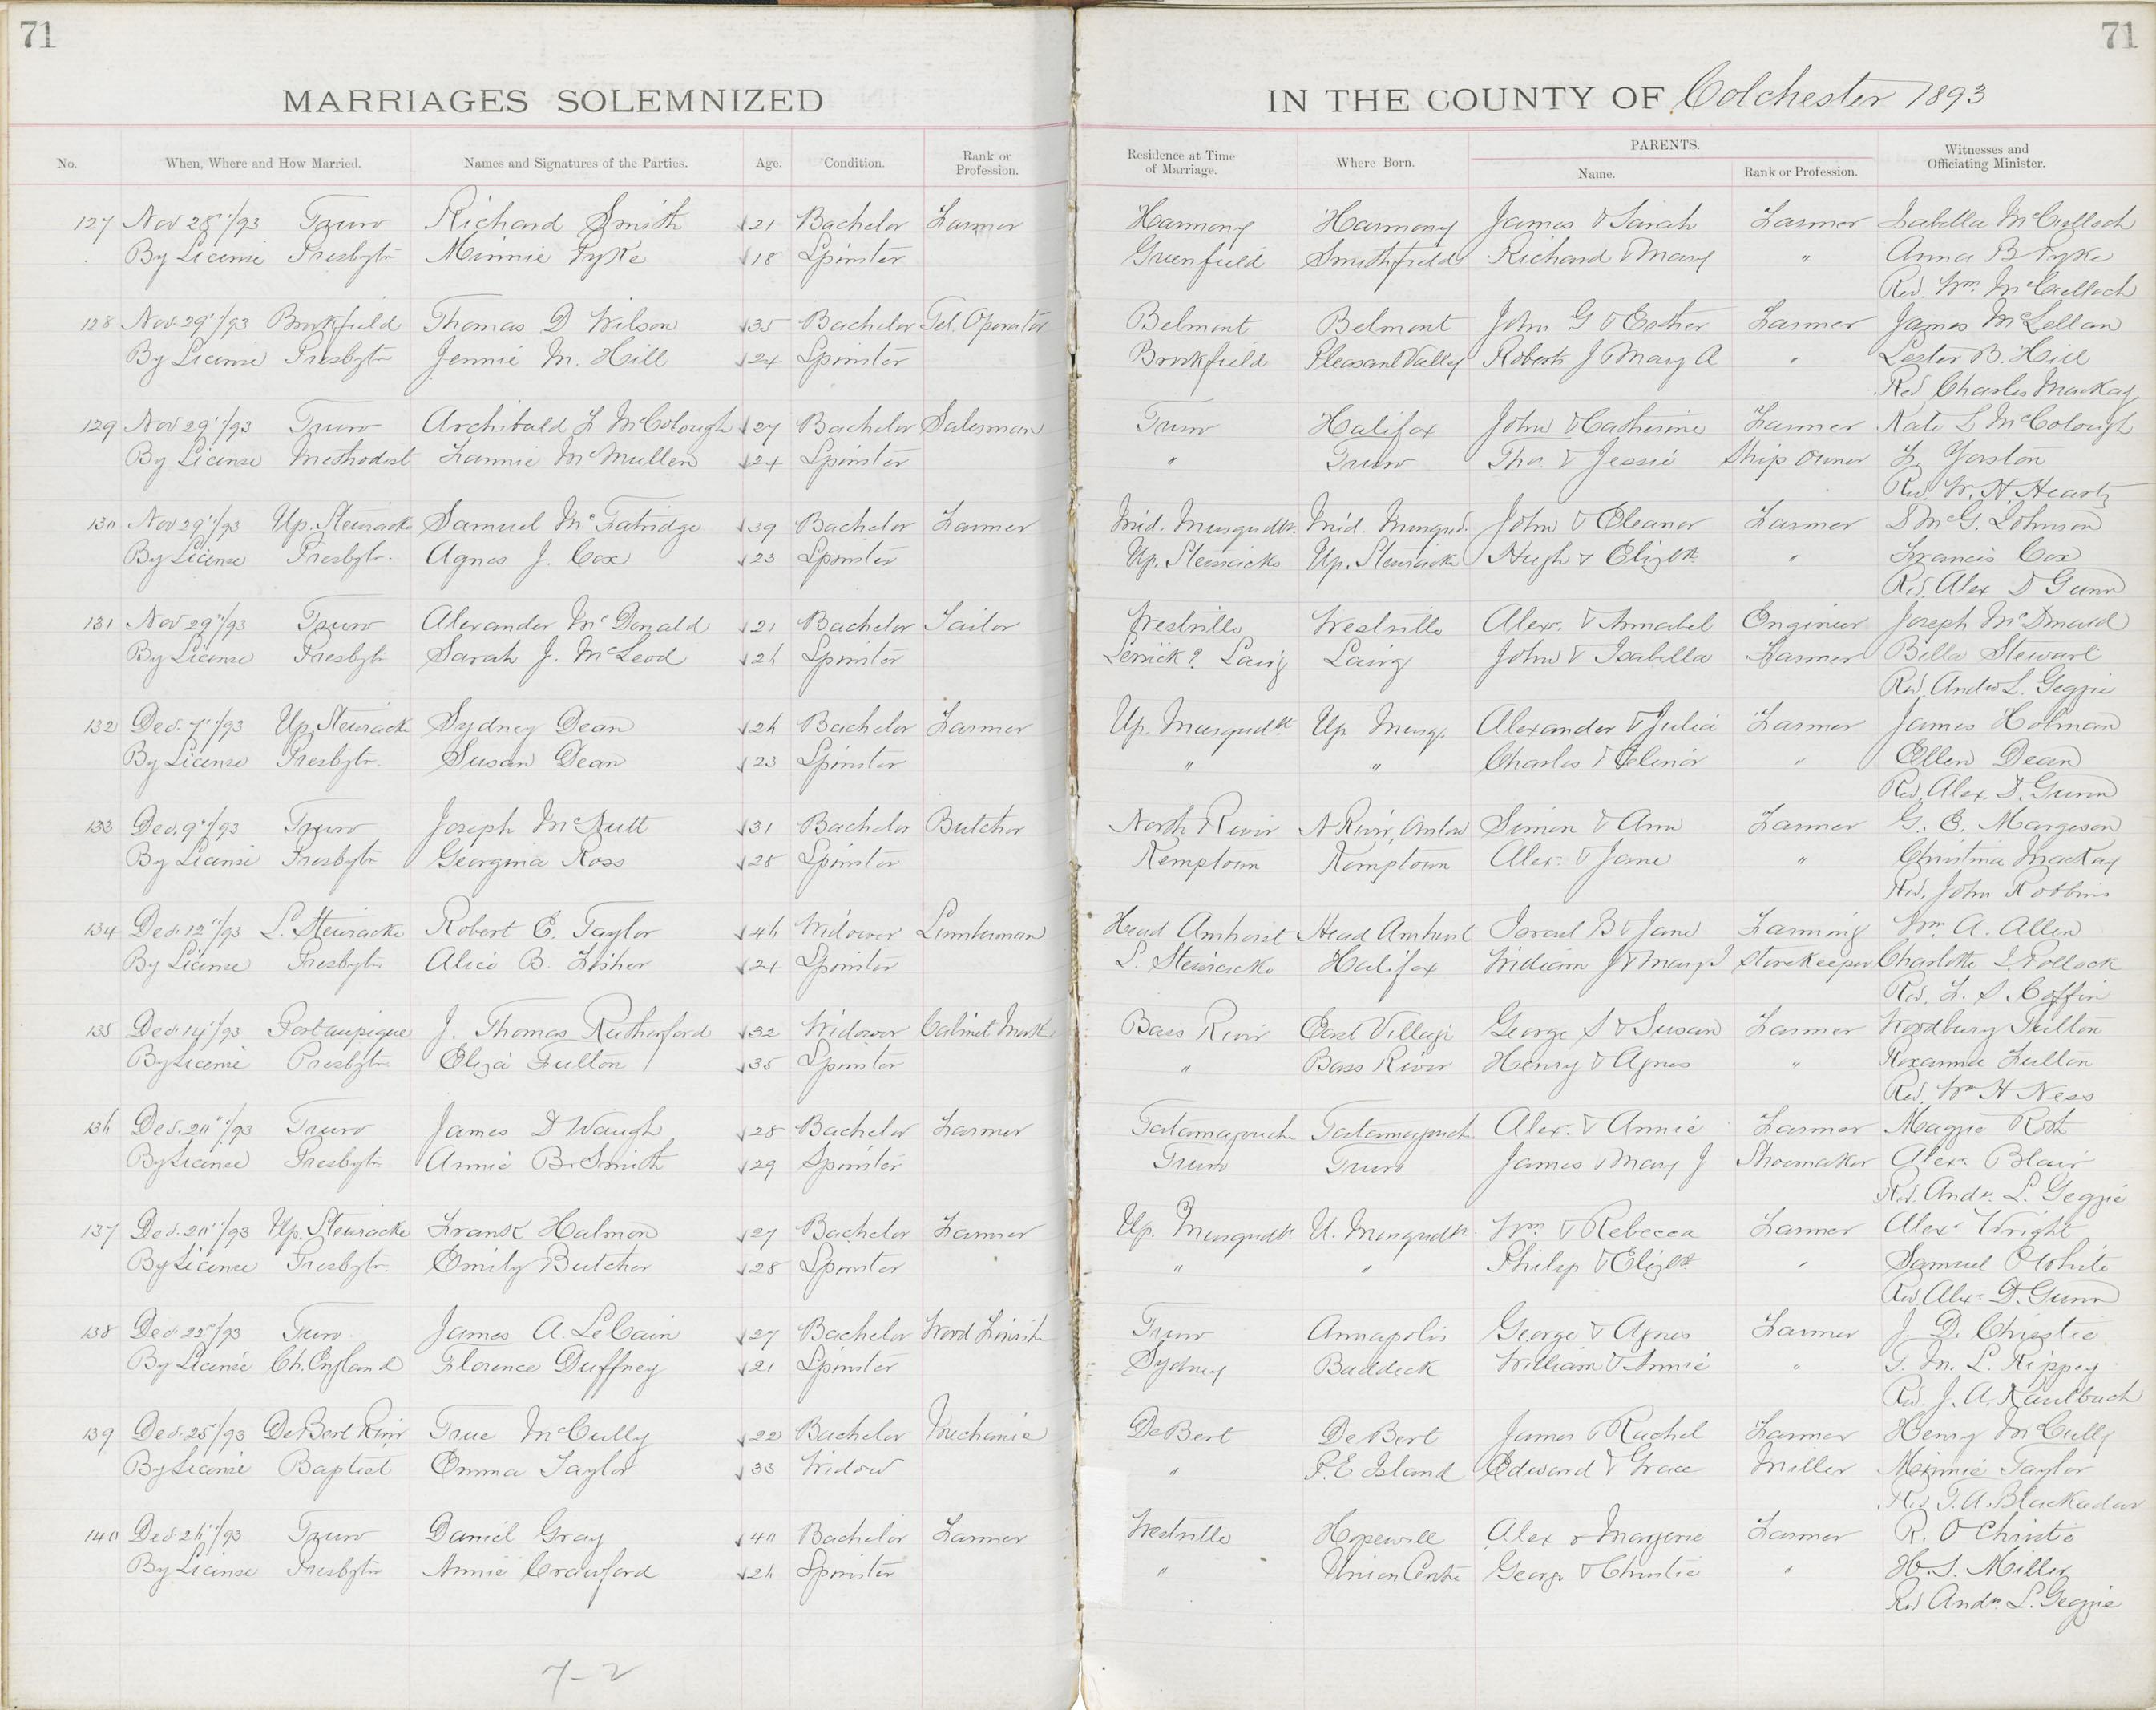 71
71
MARRIAGES SOLEMNIZED
IN THE COUNTY OF Colchester 1893
No. When, Where and How Married. Names and Signatures of the Parties. Age. Condition. Rank or Profession. Residence at Time of Marriage. Where Born. PARENTS. Name. Rank or Profession. Witnesses and Officiating Minister.
127 Nov 28"/93 Truro Richard Smith 21 Bachelor Farmer Harmony Harmony James & Sarah Farmer Isabella McCulloch
By License Presbytn Minnie Pyke 18 Spinster Greenfield Smithfield Richard & Mary " Anna B Pyke
Rev. Wm. McCulloch
128 Nov. 29"/93 Brookfield Thomas D Wilson 35 Bachelor Tel. Operator Belmont Belmont John G & Esther Farmer James McLellan
By License Presbytn Jennie M. Hill 24 Spinster Brookfield Pleasant Valley Robert J & Mary A " Lester B. Hill
Rev Charles MacKay
129 Nov 29"/93 Truro Archibald L McColough 27 Bachelor Salesman Truro Halifax John & Catherine Farmer Kate L McColough
By License Methodist Fannie McMullen 24 Spinster " Truro Thos. & Jessie Ship Owner L. Yorston
Rev. W. H. Heartz
130 Nov 29"/93 Up. Stewiacke Samuel McFatridge 39 Bachelor Farmer Mid. Musquodt. Mid. Musqud. John & Eleanor Farmer D McG. Johnson
By License Presbytr. Agnes J. Cox 23 Spinster Up. Stewiacke Up. Stewiacke Hugh & Elizbth " Francis Cox
Rev. Alex D Gunn
131 Nov 29"/93 Truro Alexander McDonald 21 Bachelor Tailor Westville Westville Alex. & Annabel Engineer Joseph McDonald
By License Presbytn Sarah J. McLeod 26 Spinster Lerrick? Lairg Lairg John & Isabella Farmer Bella Stewart
Rev. Andw L. Geggie
132 Dec. 7"/93 Up. Stewiacke Sydney Dean 26 Bachelor Farmer Up. Musquodt Up Musq. Alexander & Julia Farmer James Holman
By License Presbytr. Susan Dean 23 Spinster " " Charles & Elinor " Ellen Dean
Rev. Alex. D. Gunn
133 Dec. 9"/93 Truro Joseph McNutt 31 Bachelor Butcher North River N River, Onslow Simon & Ann Farmer G. E. Margeson
By License Presbytn Georgina Ross 28 Spinster Kemptown Kemptown Alex. & Jane " Christina MacKay
Rev. John Robbins
134 Dec. 12"/93 L. Stewiacke Robert E. Taylor 46 Widower Lumberman Head Amherst Head Amherst Israel B & Jane Farming Wm. A. Allen
By License Presbytn Alice B. Fisher 24 Spinster L. Stewiacke Halifax William J & Mary J Storekeeper Charlotte I. Pollock
Rev. F. S. Coffin
135 Dec. 14"/93 Portaupique J. Thomas Rutherford 32 Widower Cabinet Maker Bass River East Village George S & Susan Farmer Woodbury Fulton
By License Presbytn Eliza Fulton 35 Spinster " Bass River Henry & Agnes " Roxanna Fulton
Rev. Wm H Ness
136 Dec. 20"/93 Truro James D Waugh 28 Bachelor Farmer Tatamagouche Tatamagouche Alex. & Annie Farmer Maggie Roth
By License Presbytn Annie B. Smith 29 Spinster Truro Truro James & Mary J Shoemaker Alex. Blair
Rev. Andw. L. Geggie
137 Dec. 20"/93 Up. Stewiacke Frank Halmon 27 Bachelor Farmer Up. Musquodt. U. Musquodt. Wm & Rebecca Farmer Alex. Wright
By License Presbytr. Emily Butcher 28 Spinster " " Philip & Elizbth " Samuel P White
Rev. Alex. D. Gunn
138 Dec 22"/93 Turo James A. LeCain 27 Bachelor Wood Finisher Truro Annapolis George & Agnes Farmer J. D. Christie
By License Ch. England Florence Duffney 21 Spinster Sydney Baddeck William & Annie " T. M. L. Rippey
Rev. J. A. Kaulbach
139 Dec. 25"/93 DeBert River True McCully 22 Bachelor Mechanic DeBert DeBert James & Rachel Farmer Henry McCully
By License Baptist Emma Taylor 33 Widow " P. E Island Edward & Grace Miller Minnie Taylor
Rev T. A. Blackadar
140 Dec. 26"/93 Truro Daniel Gray 40 Bachelor Farmer Westville Hopewell Alex & Margerie Farmer R. O Christie
By License Presbytn Annie Crawford 26 Spinster " Union Centre George & Christie " H. S. Miller
Rev Andw. L. Geggie
7-2